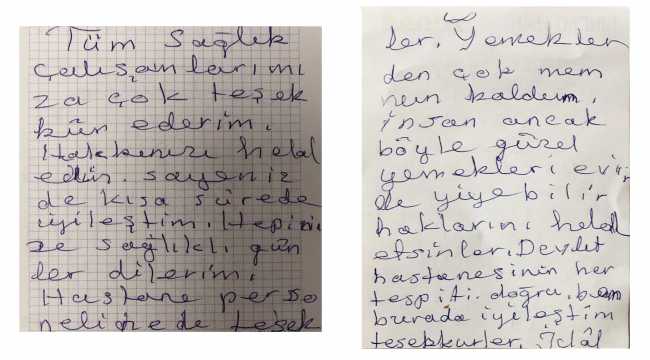 Tüm Sağlık
çalışanlarımı
za çok teşek
kür ederim.
Hakkınızı helal
edin. sayeniz
de kısa sürede
iyileştim. Hepini
ze sağlıklı gün
ler dilerim.
Hastane perso
neline de teşek
ler. Yemekler
den çok mem
nun kaldım.
insan ancak
böyle güzel
yemekleri evin
de yiyebilir
haklarını helal
etsinler. Devlet
hastanesinin her
tespiti doğru. ben
burada iyileştim
teşekkürler.